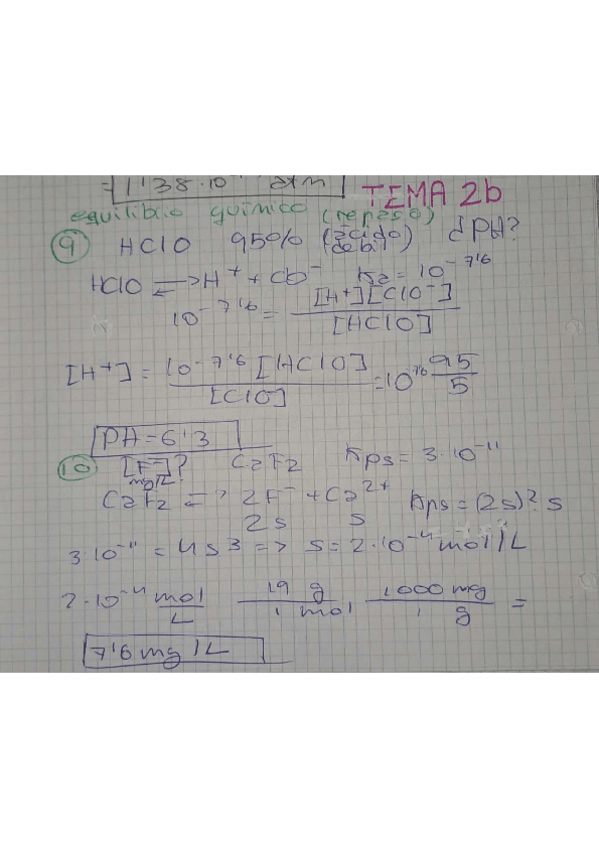 = 1'38·10 atm TEMA 2b
equilibrio químico (repaso)
9 HClO 95% (ácido debil) ¿PH?
HClO ⇌ H⁺ + ClO⁻ Ka = 10⁻⁷'⁶
10⁻⁷'⁶ = [H⁺][ClO⁻] / [HClO]
[H⁺] = 10⁻⁷'⁶ [HClO] / [ClO] = 10⁷⁶ 95/5
PH = 6'3
10 [F⁻]? mg/L CaF2 Kps = 3·10⁻¹¹
CaF2 ⇌ 2F⁻ + Ca²⁺ Kps = (2s)²·s
2s s
3·10⁻¹¹ = 4s³ => s = 2·10⁻⁴ mol/L
2·10⁻⁴ mol/L 19 g/1 mol 1000 mg/1 g =
7'6 mg/L